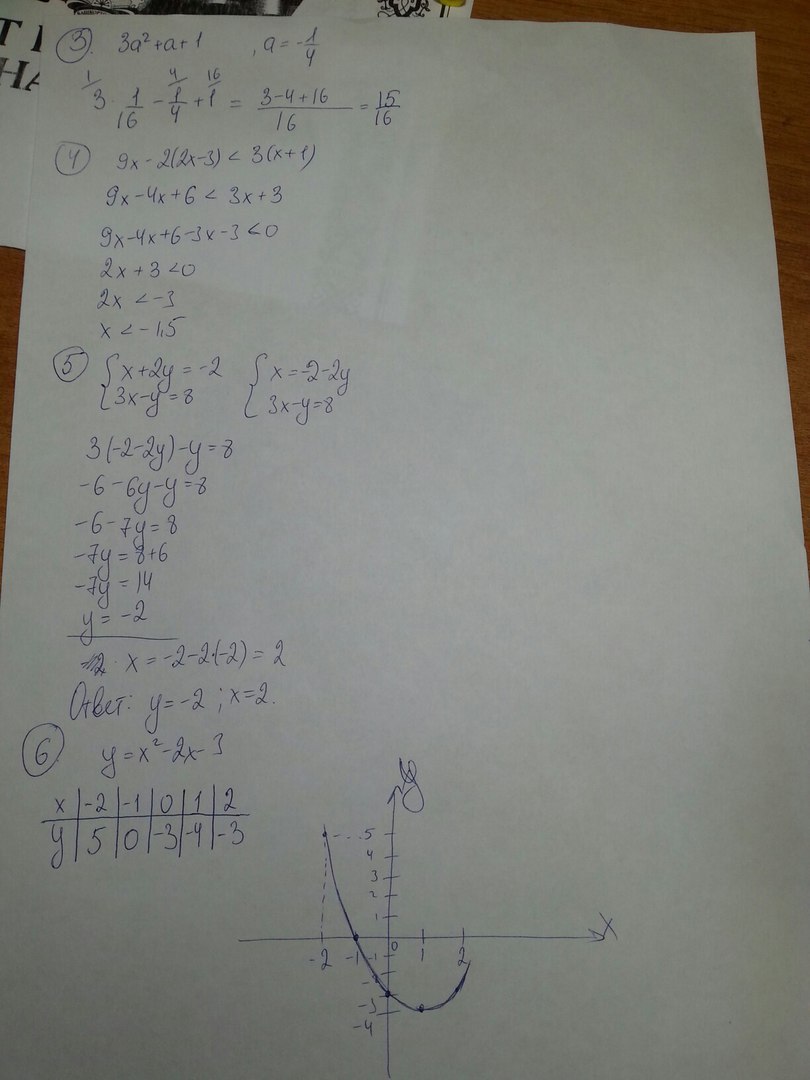 Т
НА
3. 3a²+a+1 , a = -1/4
3 · 1/16 - 1/4 + 1 = (3-4+16)/16 = 15/16
4 9x-2(2x-3) < 3(x+1)
9x-4x+6 < 3x+3
9x-4x+6-3x-3<0
2x+3<0
2x < -3
x < -1,5
5 { x+2y = -2 { x = -2-2y
3x-y=8 3x-y=8
3(-2-2y)-y=8
-6-6y-y=8
-6-7y=8
-7y=8+6
-7y=14
y = -2
x = -2-2·(-2) = 2
Ответ: y = -2 ; x=2.
6 y = x²-2x-3
x | -2 | -1 | 0 | 1 | 2
y | 5 | 0 | -3 | -4 | -3
y
5
4
3
2
1
x
-2 -1 0 1 2
-1
-2
-3
-4